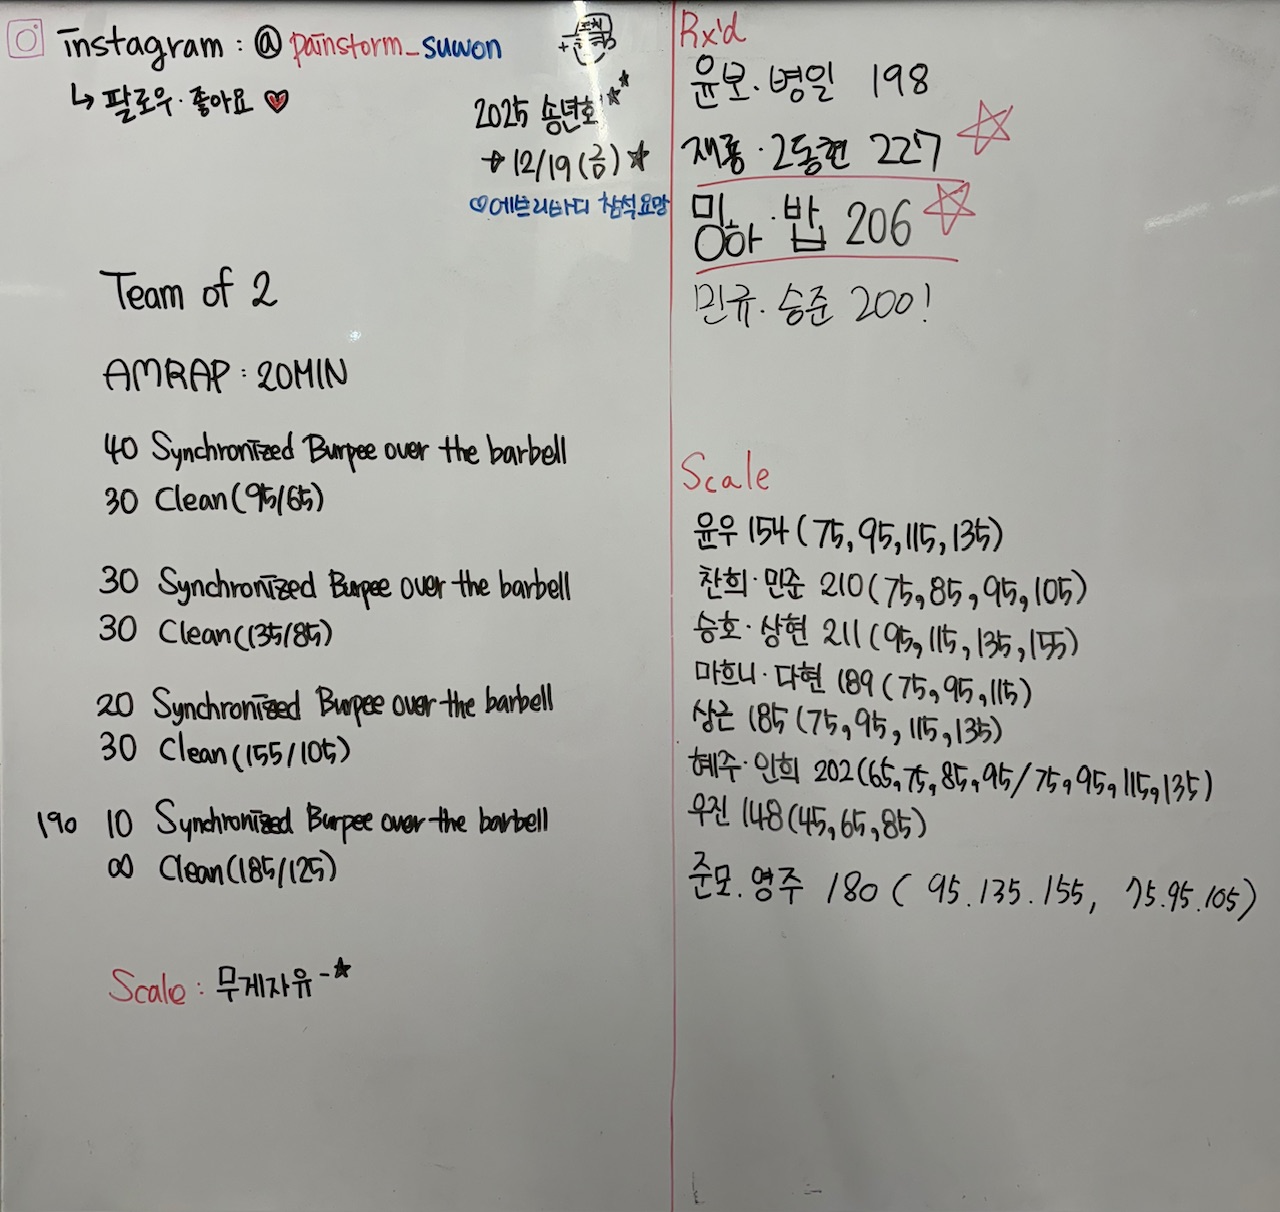 instagram : @painstorm_suwon
↳ 팔로우·좋아요 ♥
2025 송년회 ★★
→ 12/19 (금) ★
♡에브리바디 참석요망
Team of 2
AMRAP : 20MIN
40 Synchronized Burpee over the barbell
30 Clean (95/65)
30 Synchronized Burpee over the barbell
30 Clean (135/85)
20 Synchronized Burpee over the barbell
30 Clean (155/105)
190 10 Synchronized Burpee over the barbell
∞ Clean (185/125)
Scale : 무게자유-★
Rx'd
윤모·병일 198
재룡·2동현 227 ☆
밍하·밥 206 ☆
민규·승준 200!
Scale
윤우 154 (75, 95, 115, 135)
찬희·민준 210 (75, 85, 95, 105)
승호·상현 211 (95, 115, 135, 155)
마흐니·다현 189 (75, 95, 115)
상근 185 (75, 95, 115, 135)
혜주·인희 202 (65, 75, 85, 95 / 75, 95, 115, 135)
우진 148 (45, 65, 85)
준모.영주 180 ( 95.135.155, 75.95.105)